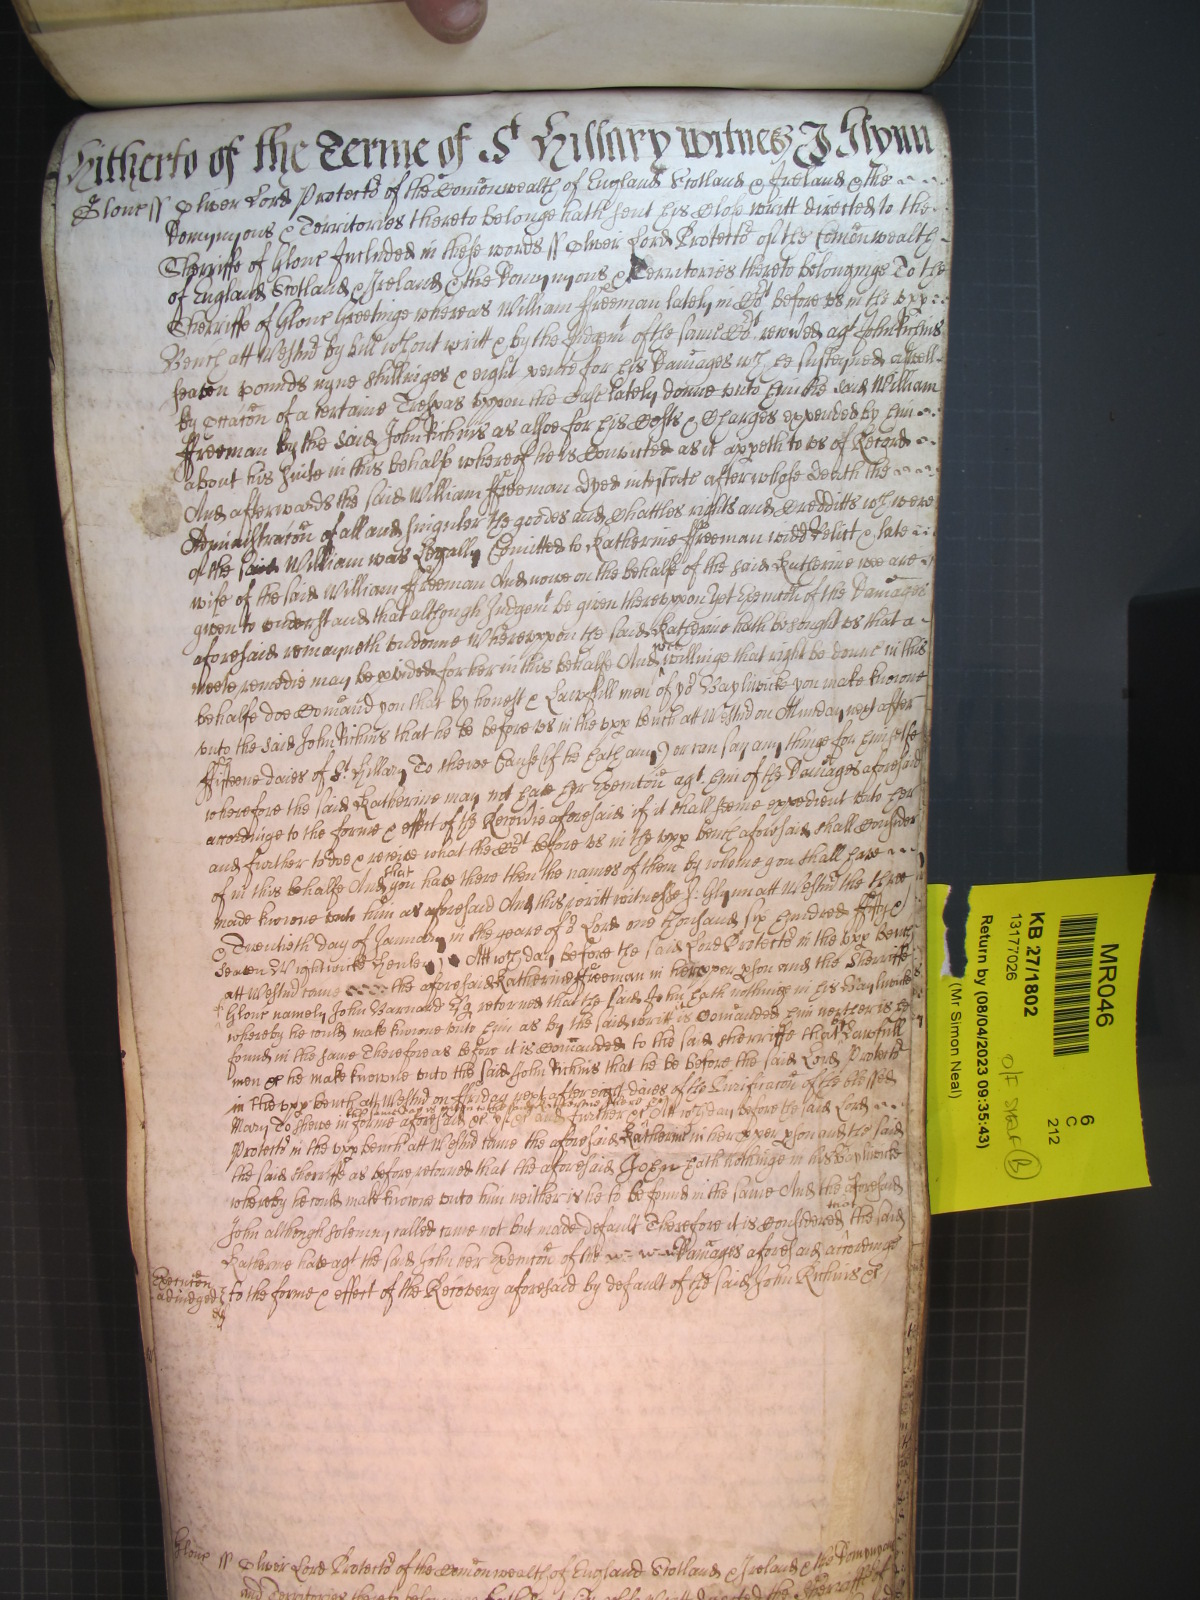 Hitherto of the Terme of St Hillary witnes J Glynn
Glouc ss Oliver Lord Protector of the Comonwealth of England Scotland & Ireland & the
Domynyons & Territories thereto belonge hath sent his Close writt directed to the
Sherriffe of Glouc Included in these words ss Oliver Lord Protector of the Comonwealth
of England Scotland & Ireland & the Domynyons & Territories thereto belonginge To the
Sherriffe of Glouc Greetinge whereas William Freeman lately in Cort before us in the upp
Bench att Westmr by bill wthout writt & by the Judgemt of the same Cort recoved agt John
seaven pounds nyne shillinges & eight pence for his Damages wch he susteyned aswell
by occacon of a certaine Trespas uppon the Case lately donne unto him the said William
ffreeman by the said John as alsoe for his Costs & Charges expended by him
about his suite in this behalfe whereof he is Convicted as it appeth to us of Record
And afterwards the said William ffreeman dyed intestate after whose death the
Administracon of all and singuler the goodes and Chattles rights and Credditts wch were
of the said William was Legally Comitted to Katherine ffreeman widd Relict & late
wife of the said William ffreeman And nowe on the behalfe of the said Katherine wee are
given to understand that although Judgemt be given thereuppon Yet Execucon of the Damages
aforesaid remayneth undonne Whereuppon the said Katherine hath besought us that a
meete remedie may be pvided for her in this behalfe And wee willinge that right be donne in this
behalfe doe Comaund you that by honest & Lawfull men of yor Baylywicke you make knowne
unto the said John that he be before us in the upp bench att Westmr on Munday next after
ffifteene daies of St Hillary To shewe Cause (if he hath any) or can say any thinge for himselfe
wherefore the said Katherine may not have her Execucon agt him of the Damages aforesaid
accordinge to the forme & effect of the Recovrie aforesaid if it shall seeme expedient unto her
and further to doe & receive what the Cort before us in the upp bench aforesaid shall Consider
of in this behalfe And that you have there then the names of them by whome you shall have
made knowne unto him as aforesaid And this writt witnesse J: Glynn att Westmr the three
& Twentieth day of January in the yeare of or Lord one thousand six hundred ffifty &
seaven Wightwicke Henley Att wch day before the said Lord Protector in the upp bench
att Westmr came the aforesaid Katherine ffreeman in her pper pson and the Sherriffe
Glouc namely John Barnard Esq returned that the said John hath nothinge in his Baylywicke
whereby he could make knowne unto him as by the said writt is Comanded him neither is he
found in the same Therefore as before it is Comanded to the said sherriffe that by Lawfull
men &c he make knowne unto the said John that he be before the said Lord Protector
in the upp bench att Westmr on ffriday next after eight daies of the Purificacon of the blessed
Mary To shewe in forme aforesaid &c if &c and further &c Att wch day before the said Lord
the same day is given to the said Katherine there &c
Protector in the upp bench att Westmr came the aforesaid Katherine in her pper pson and the said
the said sherriffe as before returned that the aforesaid John hath nothinge in his Baylywicke
whereby he could make knowne unto him neither is he to be found in the same And the aforesaid
John although solemnly called came not but made default Therefore it is Considered that the said
Katherine have agt the said John her Execucon of the Damages aforesaid accordinge
Execucon
adiudged
&c
to the forme & effect of the Recovery aforesaid by default of the said John &c
Glouc ss Oliver Lord Protector of the Comonwealth of England Scotland & Ireland & the Domynyons
and Territories thereto belonginge hath sent his Close writt directed the Sherriffe of
MR046
6
C
212
KB 27/1802
13177026
Return by (08/04/2023 09:35:43)
(Mr Simon Neal)
O/F STAFF B